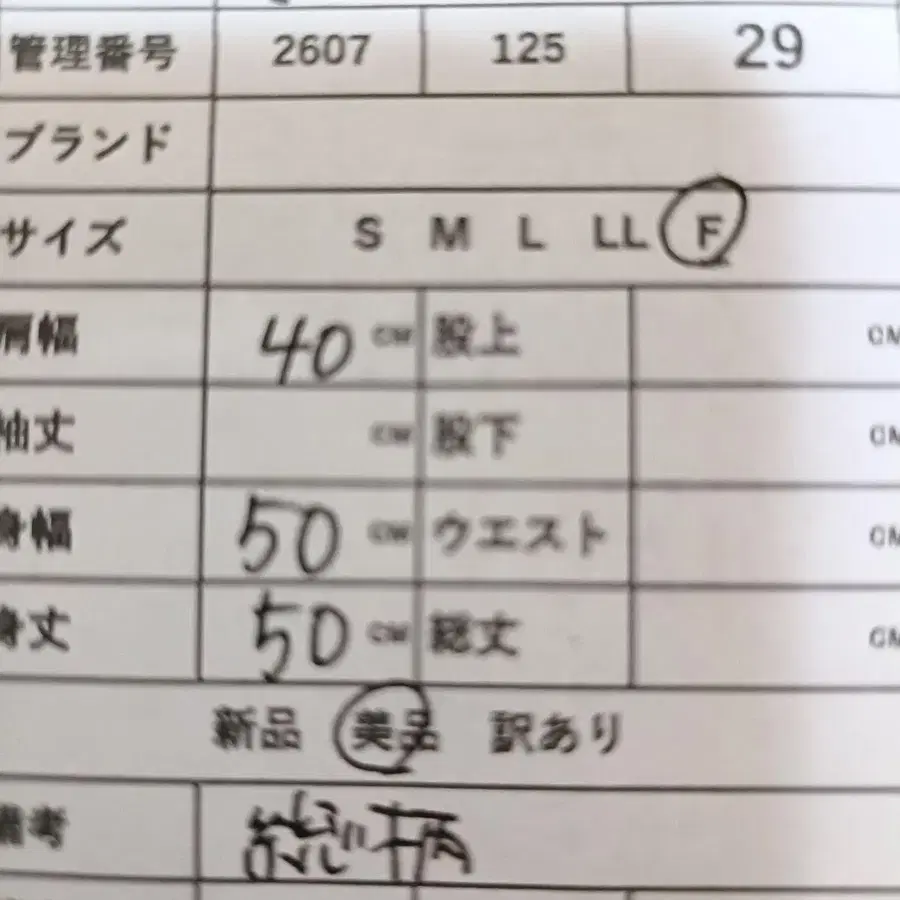 管理番号 2607 125 29
ブランド
サイズ S M L LL F
肩幅 40 CM 股上 CM
袖丈 CM 股下 CM
身幅 50 CM ウエスト CM
身丈 50 CM 総丈 CM
新品 美品 訳あり
備考 総柄